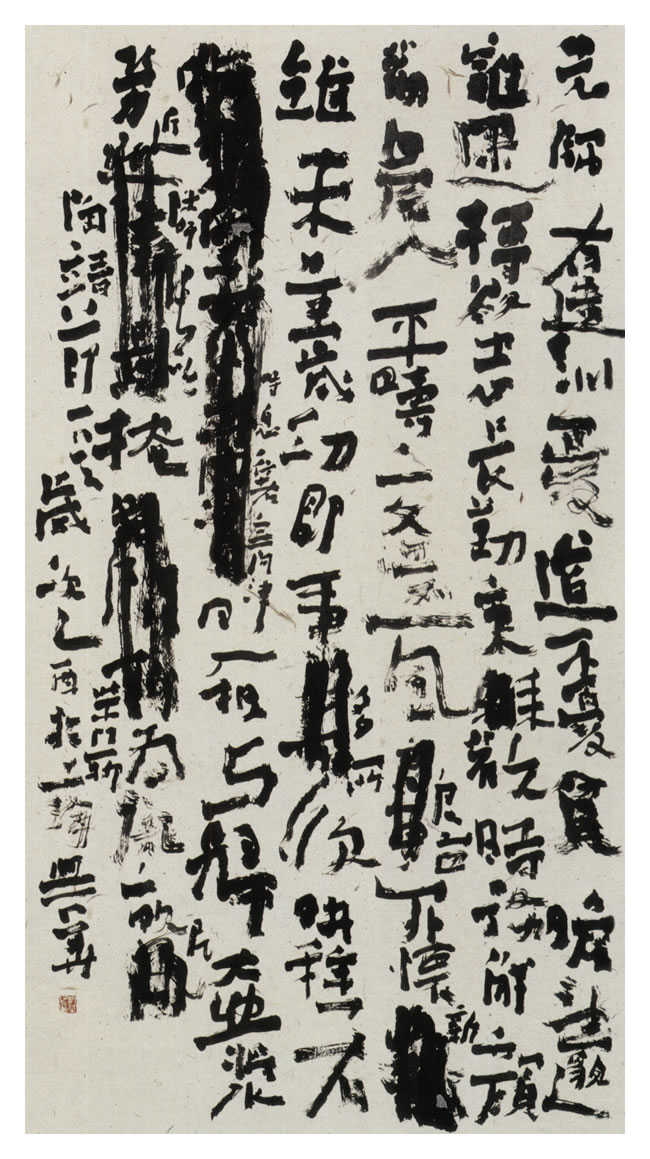 先師有遺訓憂道不憂貧瞻望邈
難逮轉欲志長勤秉耒歡時務解顏
勸農人平疇交遠風良苗亦懷新
雖未量歲功即事多所欣耕種有
時息行者無問津日入相與歸壺漿
勞近鄰長吟掩柴門為隴畝民
陶靖節詩一首歲次乙酉於上海